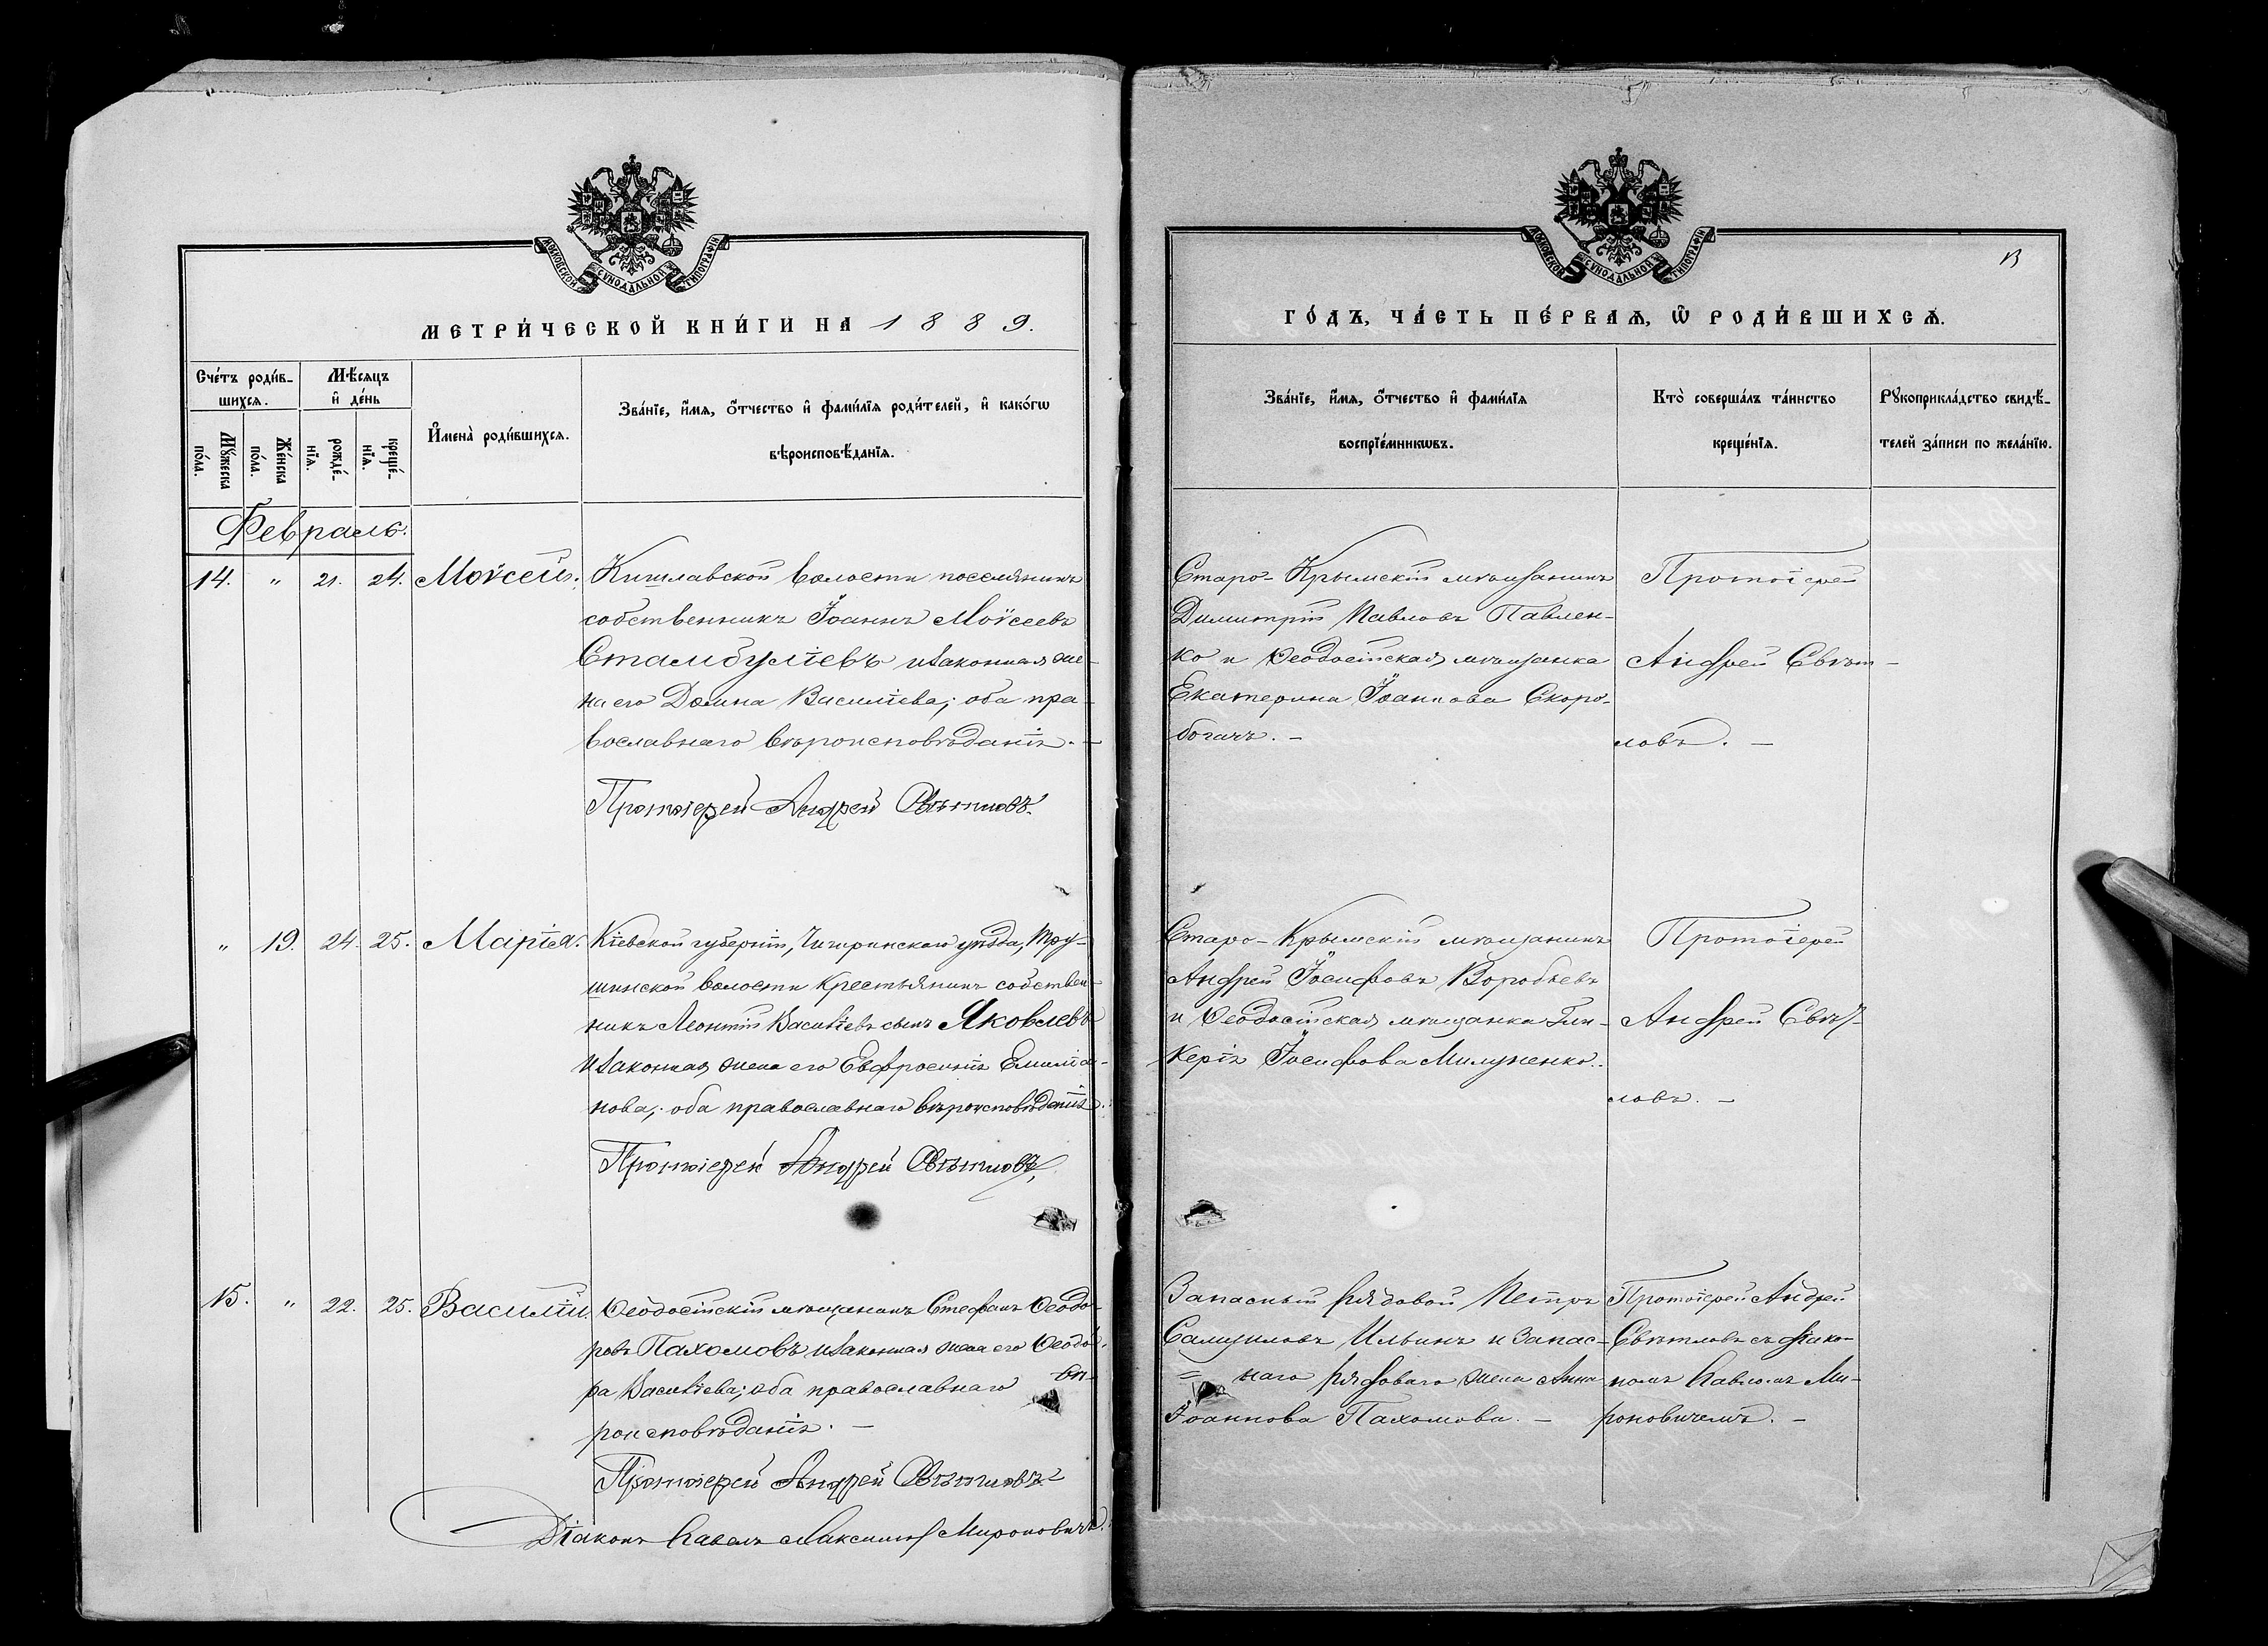 МОСКОВСКОЙ СѴНОДАЛЬНОЙ ТИПОГРАФІИ
МЕТРИ́ЧЕСКОЙ КНИ́ГИ НА 1889.
Сче́тъ роди́в-
шихсѧ.
Мѣ́сѧцъ
и҆ де́нь
И҆мена̀ роди́вшихсѧ.
Зва́нїе, и҆́мѧ, ѻ҆́тчество и҆ фами́лїѧ роди́телей, и҆ како́гѡ
вѣроисповѣ́данїѧ.
Мꙋ́жеска
по́ла.
Же́нска
по́ла.
рожде́-
нїѧ.
креще́-
нїѧ.
Февраль.
14. " 21. 24. Моѵсей. Кишлавской волости поселянинъ
собственникъ Іоаннъ Моѵсеевъ
Стамбуліевъ и законная же-
на его Домна Василіева; оба пра-
вославнаго вѣроисповѣданія. —
Протоіерей Андрей Свѣтловъ.
" 19. 24. 25. Марія. Кіевской губерніи, Чигиринскаго уѣзда, Тру-
шинской волости крестьянинъ собствен-
никъ Леонтій Василіевъ сынъ Яковлевъ
и законная жена его Евфросинія Емилiа-
нова; оба православнаго вѣроисповѣданія.
Протоіерей Андрей Свѣтловъ.
15. " 22. 25. Василій. Ѳеодосійскій мѣщанинъ Стефанъ Ѳеодо-
ровъ Пахомовъ и законная жена его Ѳеодо-
ра Василіева; оба православнаго вѣ-
роисповѣданія. —
Протоіерей Андрей Свѣтловъ
Діаконъ Павелъ Максимов Мироновичъ.
МОСКОВСКОЙ СѴНОДАЛЬНОЙ ТИПОГРАФІИ
ГО́ДЪ, ЧА́СТЬ ПЕ́РВАѦ, Ѿ РОДИ́ВШИХСѦ.
Зва́нїе, и҆́мѧ, ѻ҆́тчество и҆ фами́лїѧ
воспрїе́мникѡвъ.
Кто̀ соверша́лъ та́инство
креще́нїѧ.
Рꙋкоприкла́дство свидѣ́-
телей за́писи по жела́нїю.
Старо-Крымскій мѣщанинъ
Димитрій Павловъ Павлен-
ко и Ѳеодосійская мѣщанка
Екатерина Іоаннова Скоро-
богачъ. —
Протоіерей
Андрей Свѣт-
ловъ. —
Старо-Крымскій мѣщанинъ
Андрей Іосифовъ Воробьевъ
и Ѳеодосійская мѣщанка Гли-
керія Іосифова Милуженко.
Протоіерей
Андрей Свѣт-
ловъ. —
Запасный рядовой Петръ
Самуиловъ Ильинъ и запас-
наго рядоваго жена Анна
Іоаннова Пахомова. —
Протоіерей Андрей
Свѣтловъ съ діако-
номъ Павломъ Ми-
роновичемъ. —